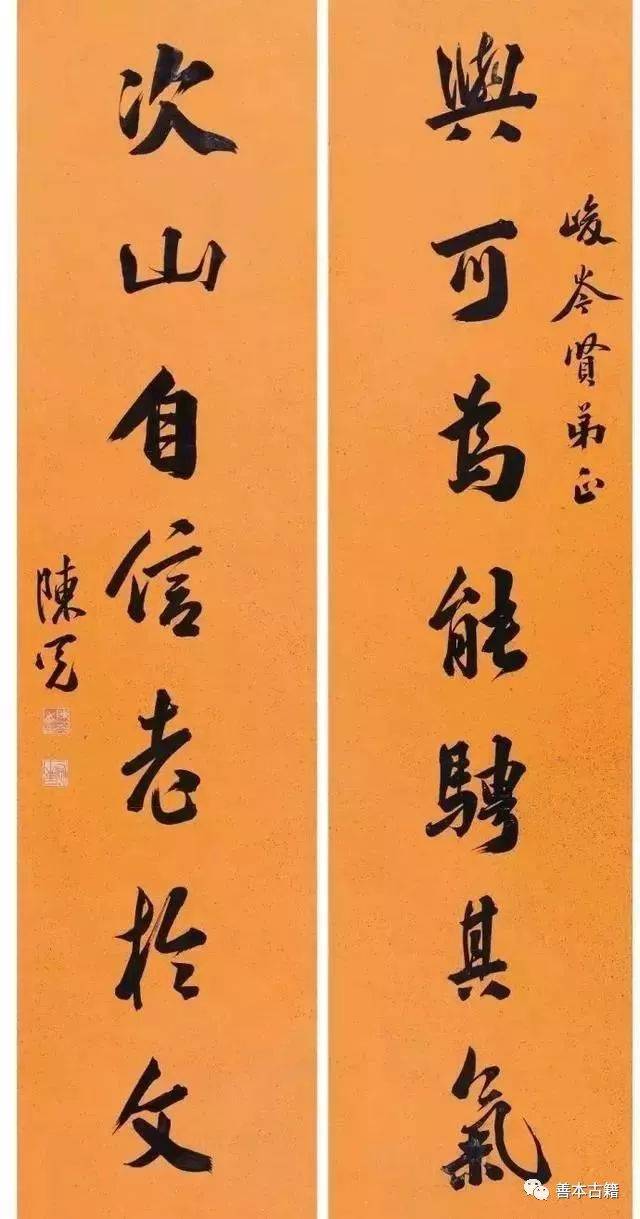 峻岑賢弟正
與可為能騁其氣
次山自信老於文
陳冕
善本古籍